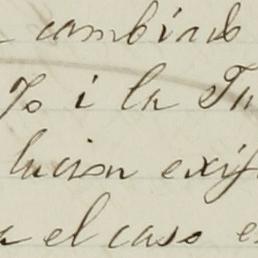 cambiado
% i la Tu
lucion exij
a el caso e